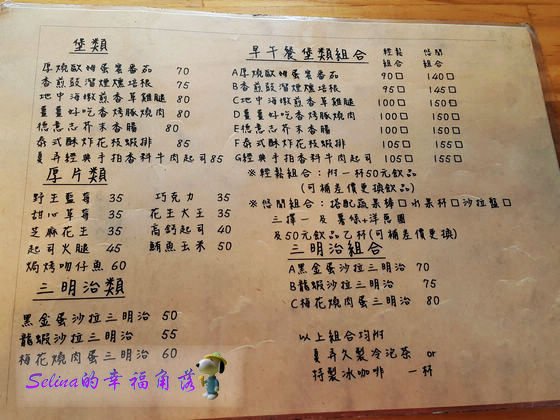 堡類
厚燒歐姆蛋蕃茄 70
香煎豉溜煙燻培根 75
地中海嫩煎香草雞腿 80
薑薑好吃香烤豚燒肉 80
德意志芥末香腸 80
泰式酥炸花枝蝦排 85
夏弄經典手拍香料牛肉起司 85
厚片類
野王藍莓 35 巧克力 35
甜心草莓 35 花王大王 35
芝麻花王 35 高鈣起司 40
起司火腿 45 鮪魚玉米 50
焗烤吻仔魚 60
三明治類
黑金蛋沙拉三明治 50
龍蝦沙拉三明治 55
梅花燒肉蛋三明治 60
早午餐堡類組合 輕鬆組合 悠閒組合
A厚燒歐姆蛋蕃茄 90□ 140□
B香煎豉溜煙燻培根 95□ 145□
C地中海嫩煎香草雞腿 100□ 150□
D薑薑好吃香烤豚燒肉 100□ 150□
E德意志芥末香腸 100□ 150□
F泰式酥炸花枝蝦排 105□ 155□
G夏弄經典手拍香料牛肉起司 105□ 155□
※輕鬆組合：附一杯50元飲品
(可補差價更換飲品)
※悠閒組合：搭配蔬果棒□水果杯□沙拉盤□
三擇一及薯條+洋芭圈
及50元飲品乙杯(可補差價更換)
三明治組合
A黑金蛋沙拉三明治 70
B龍蝦沙拉三明治 75
C梅花燒肉蛋三明治 80
以上組合均附
夏弄久製冷泡茶 or
特製冰咖啡 一杯
Selina的幸福角落